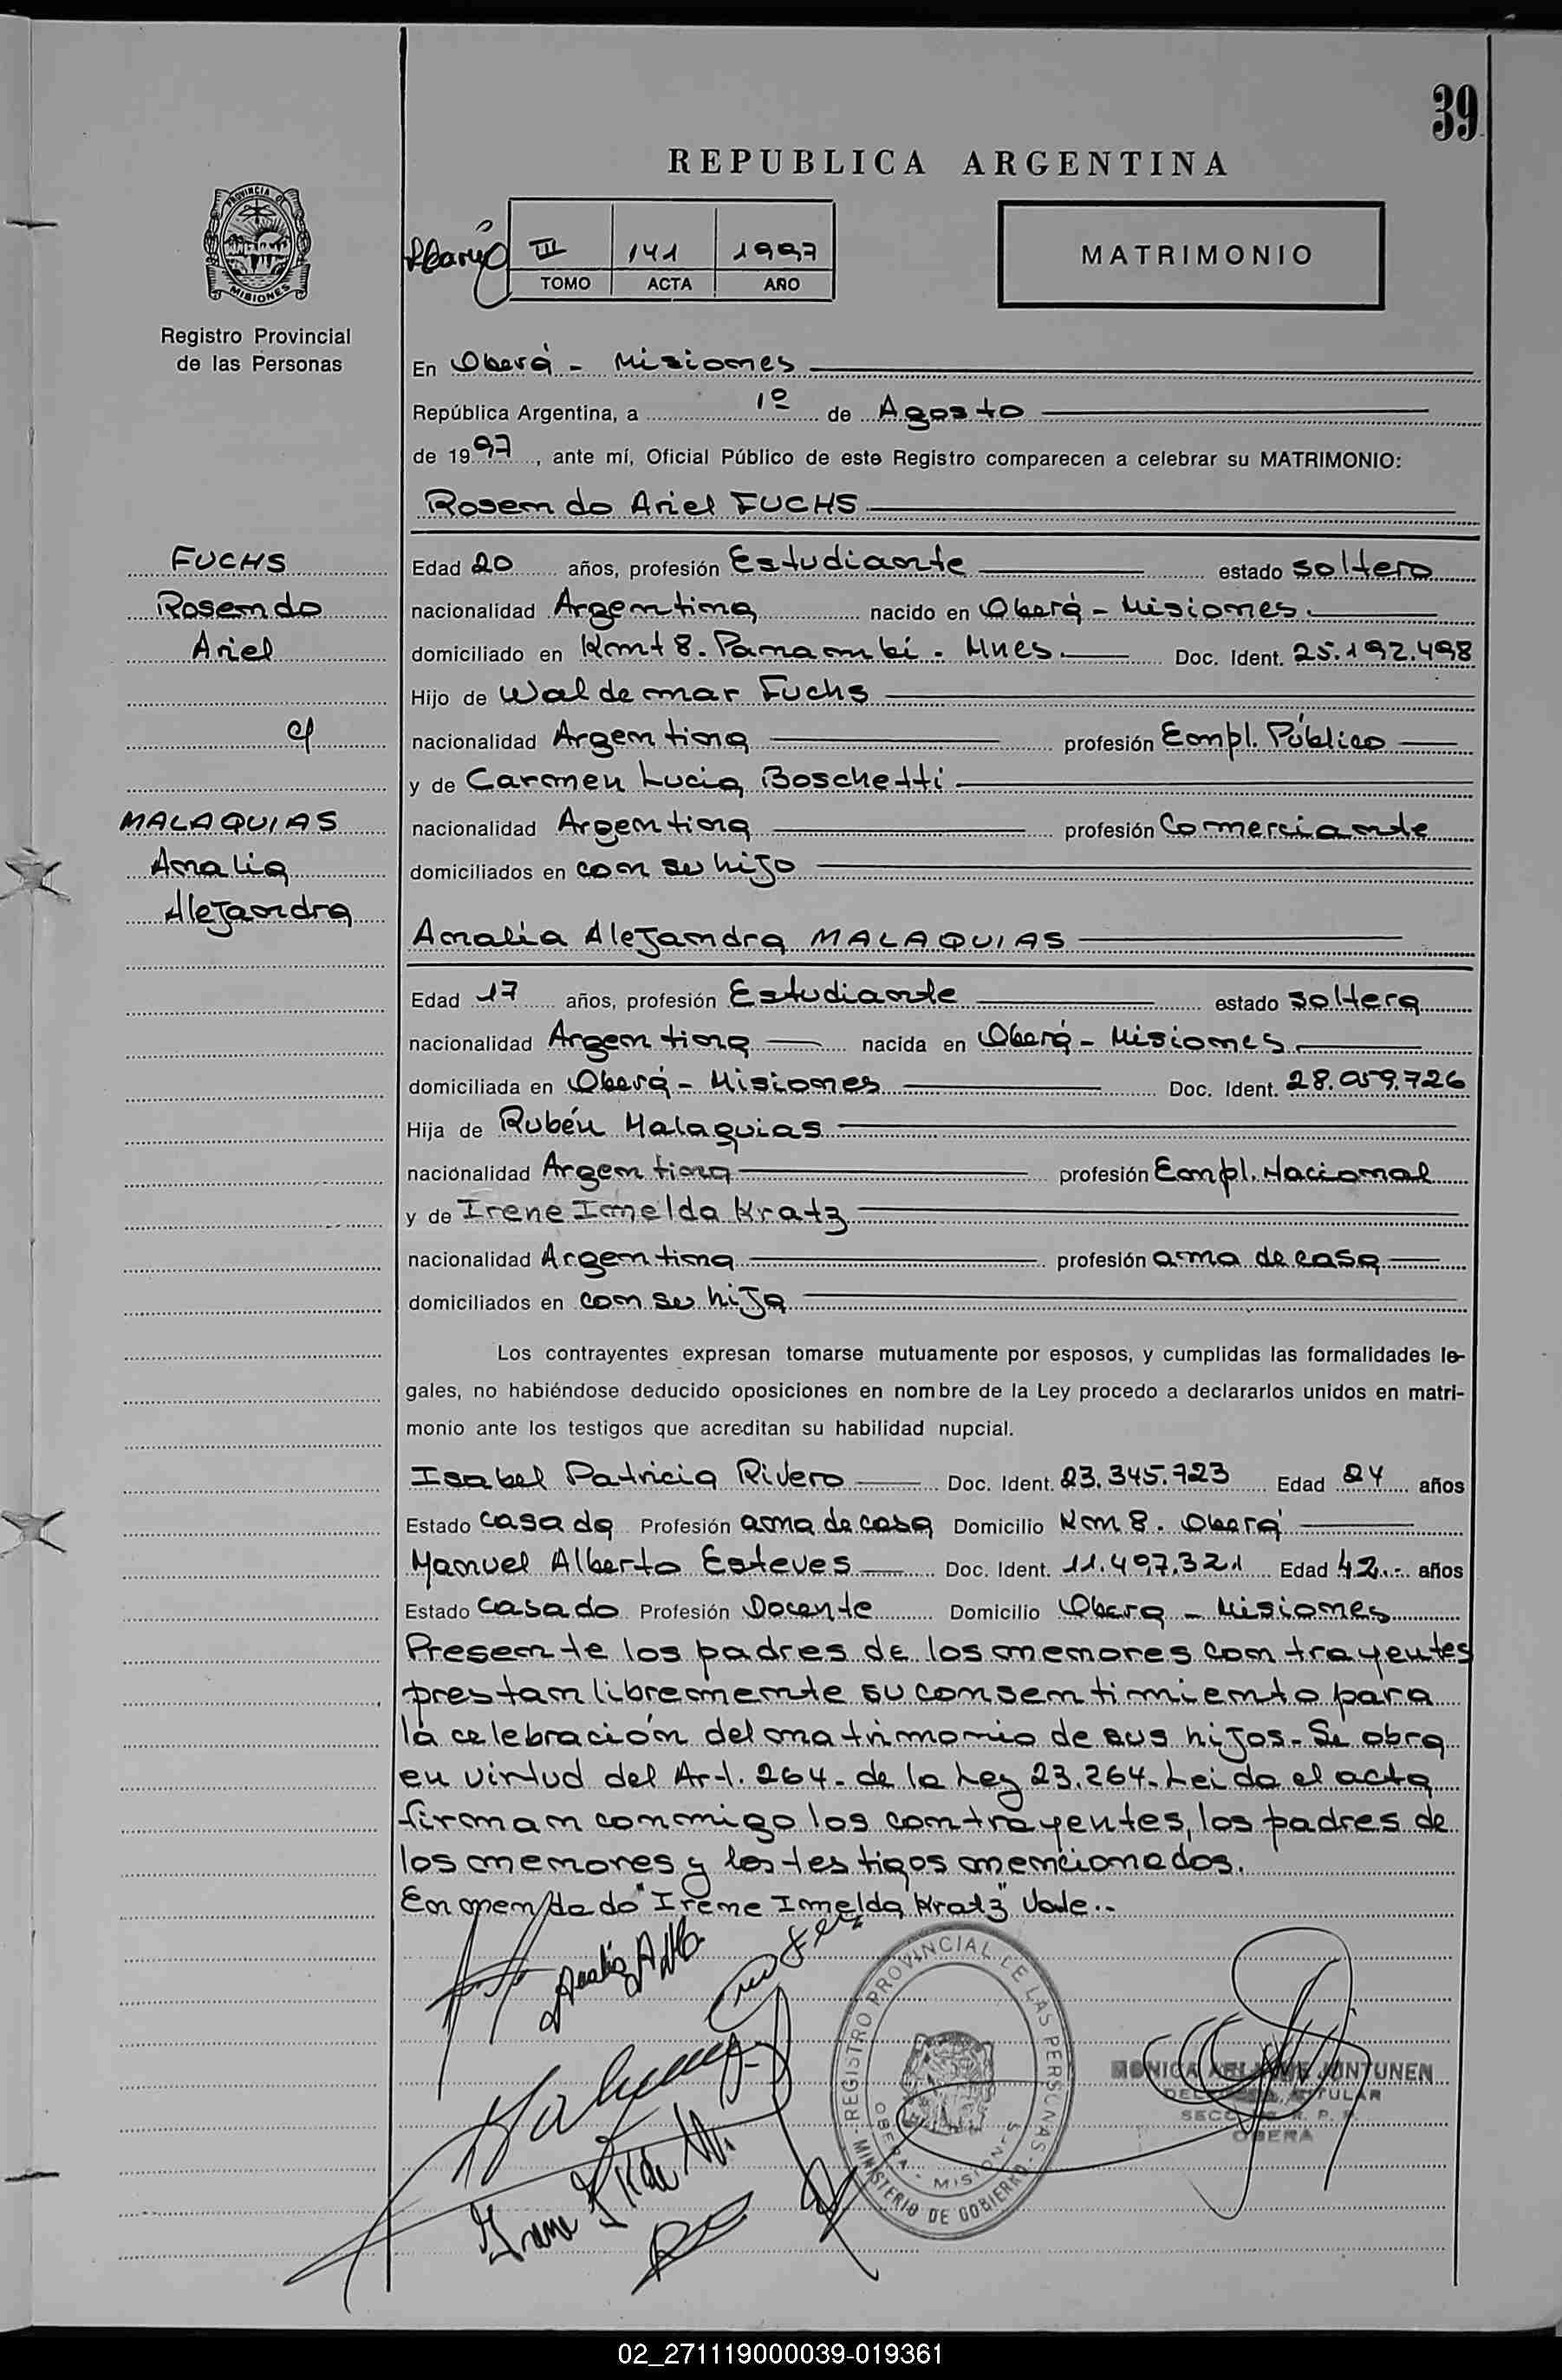 39
REPUBLICA ARGENTINA
PROVINCIA DE
MISIONES
Registro Provincial
de las Personas
III 141 1997
TOMO ACTA AÑO
MATRIMONIO
En Oberá - Misiones
República Argentina, a 1º de Agosto
de 1997, ante mí, Oficial Público de este Registro comparecen a celebrar su MATRIMONIO:
Rosendo Ariel FUCHS
FUCHS
Rosendo
Ariel
c/
MALAQUIAS
Amalia
Alejandra
Edad 20 años, profesión Estudiante estado soltero
nacionalidad Argentina nacido en Oberá - Misiones.
domiciliado en Kmt 8. Panambí. Mnes. Doc. Ident. 25.192.498
Hijo de Waldemar Fuchs
nacionalidad Argentina profesión Empl. Público
y de Carmen Lucia Boschetti
nacionalidad Argentina profesión Comerciante
domiciliados en con su hijo
Amalia Alejandra MALAQUIAS
Edad 17 años, profesión Estudiante estado soltera
nacionalidad Argentina nacida en Oberá - Misiones.
domiciliada en Oberá - Misiones Doc. Ident. 28.059.726
Hija de Rubén Malaquias
nacionalidad Argentina profesión Empl. Nacional
y de Irene Imelda Kratz
nacionalidad Argentina profesión ama de casa
domiciliados en con su hija
Los contrayentes expresan tomarse mutuamente por esposos, y cumplidas las formalidades le-
gales, no habiéndose deducido oposiciones en nombre de la Ley procedo a declararlos unidos en matri-
monio ante los testigos que acreditan su habilidad nupcial.
Isabel Patricia Rivero Doc. Ident. 23.345.723 Edad 24 años
Estado casada Profesión ama de casa Domicilio Km 8. Oberá
Manuel Alberto Esteves Doc. Ident. 11.497.321 Edad 42 años
Estado Casado Profesión Docente Domicilio Obera - Misiones
Presente los padres de los menores contrayentes
prestan libremente su consentimiento para
la celebración del matrimonio de sus hijos. Se obra
en virtud del Art. 264. de la Ley 23.264. Leida el acta
firman conmigo los contrayentes, los padres de
los menores y los testigos mencionados.
Enmendado "Irene Imelda Kratz" Vale..
REGISTRO PROVINCIAL DE LAS PERSONAS
OBERA - MISIONES
MINISTERIO DE GOBIERNO
OBERA
02_271119000039-019361